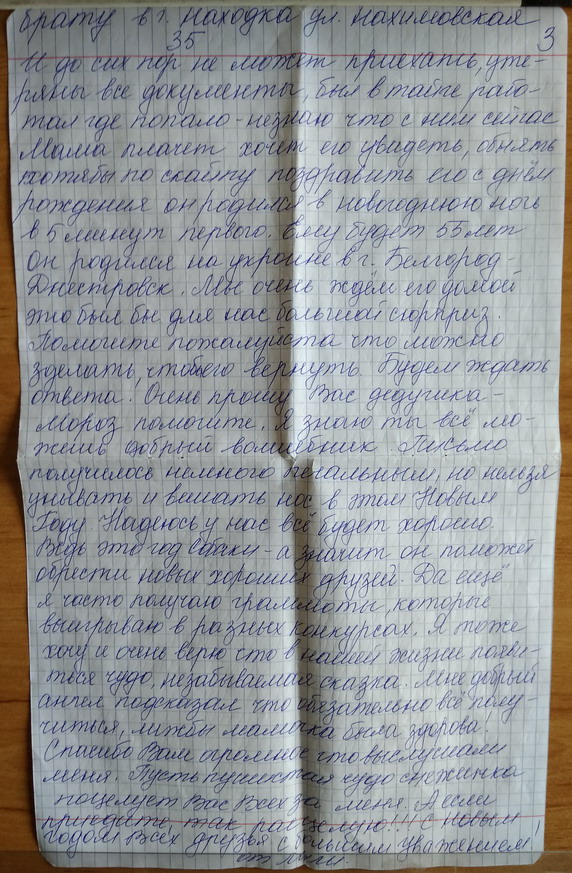 брату в г. Находка ул. Нахимовская
35
3
И до сих пор не может приехать, уте-
ряны все документы, был в тайге рабо-
тал где попало - незнаю что с ним сейчас
Мама плачет хочет его увидеть, обнять
хотябы по скайпу поздравить его с днём
рождения он родился в новогоднюю ночь
в 5 минут первого. Ему будет 55 лет
он родился на украине в г. Белгород-
Днестровск. Мы очень ждём его домой
это был бы для нас большой сюрприз.
Помогите пожалуйста что можно
зделать, чтобы его вернуть. Будем ждать
ответа! Очень прошу Вас дедушка-
Мороз помогите. Я знаю ты всё мо-
жешь добрый волшебник Письмо
получилось немного печальным, но нельзя
унывать и вешать нос в этом Новым
Году. Надеюсь у нас всё будет хорошо.
Ведь это год Собаки - а значит он поможет
обрести новых хороших друзей. Да ещё
я часто получаю граммоты, которые
выигрываю в разных конкурсах. Я тоже
хочу и очень верю что в нашей жизни появи-
тся чудо, незабываемая сказка. Мне добрый
ангел подсказал что обязательно всё полу-
читься, лижбы мамочка была здорова!
Спасибо Вам огромное что выслушали
меня. Пусть пушистая чудо снежинка
поцелует Вас Всех за меня. А если
приедите, так расцелую!!! С новым
годом Всех друзья с большим уважением!
от